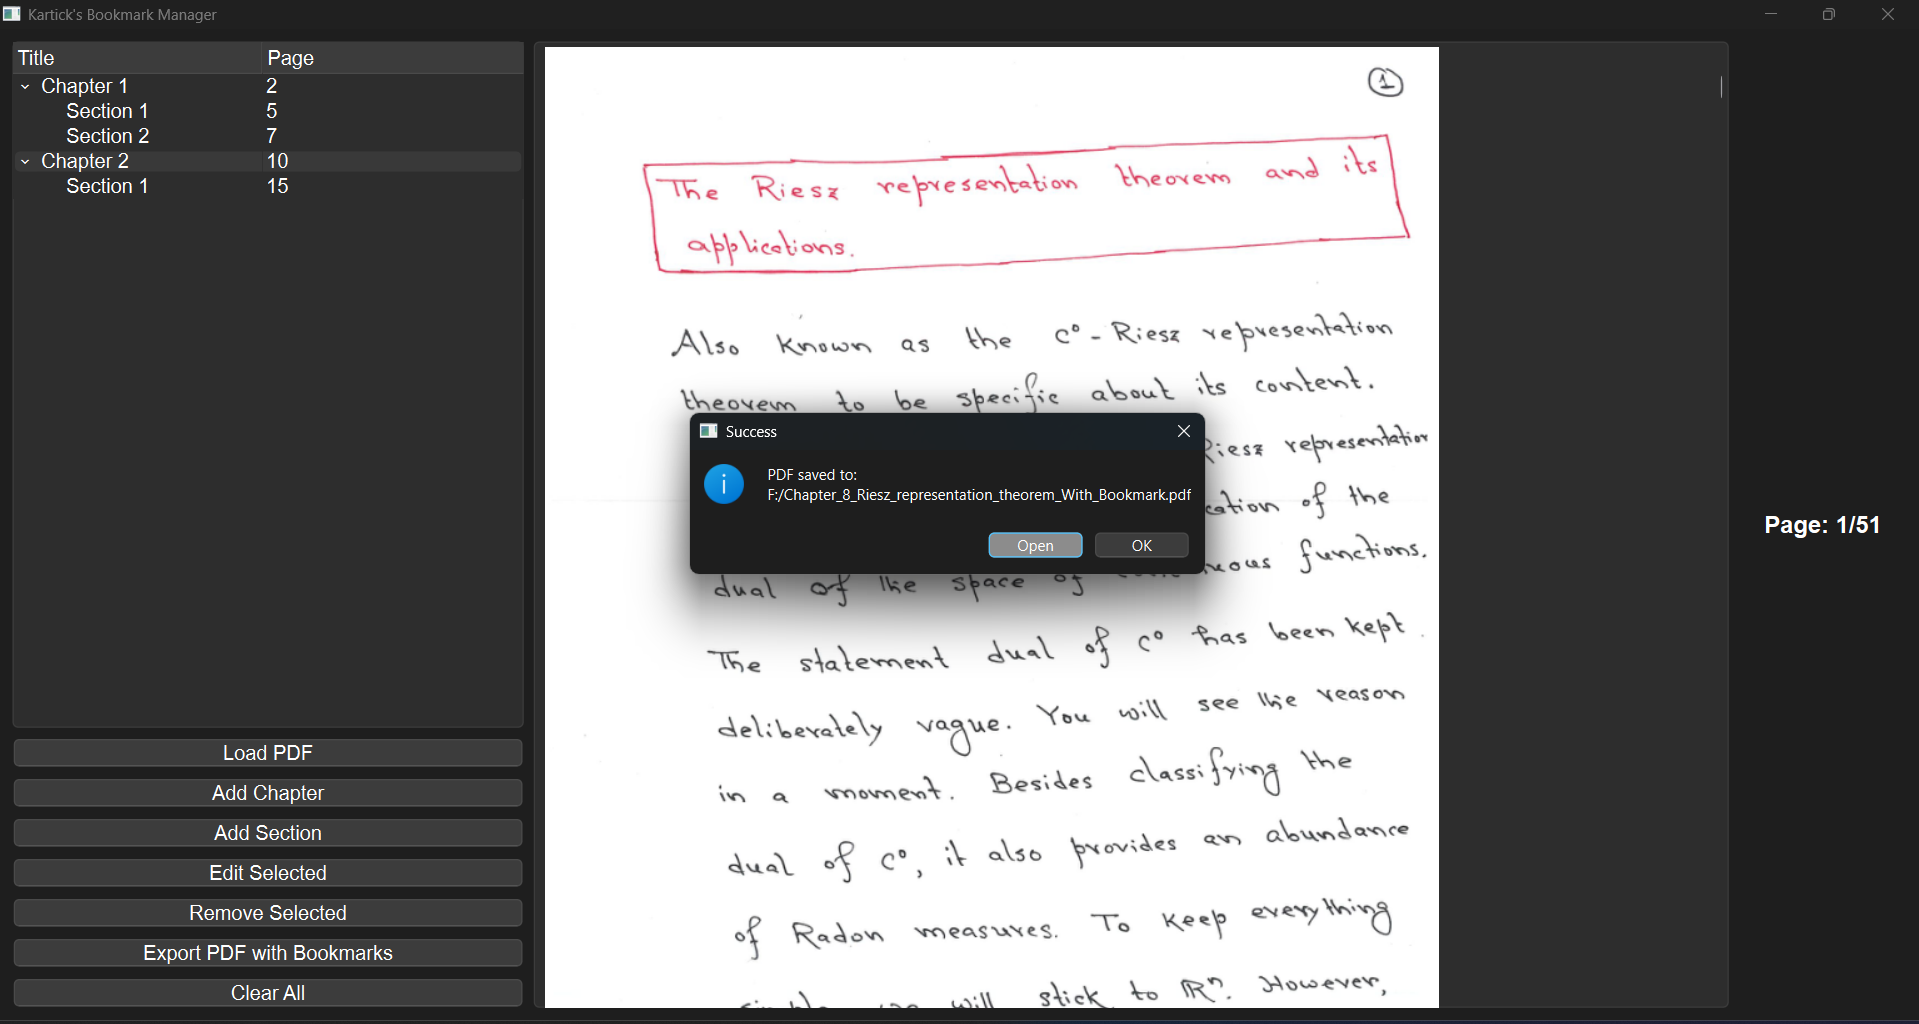 Kartick's Bookmark Manager
Title Page
Chapter 1 2
Section 1 5
Section 2 7
Chapter 2 10
Section 1 15
Load PDF
Add Chapter
Add Section
Edit Selected
Remove Selected
Export PDF with Bookmarks
Clear All
1
The Riesz representation theorem and its
applications.
Also known as the C⁰-Riesz representation
theorem to be specific about its content.
Riesz representation
of the
functions.
dual of the space of
The statement dual of C⁰ has been kept
deliberately vague. You will see the reason
in a moment. Besides classifying the
dual of C⁰, it also provides an abundance
of Radon measures. To keep everything
will stick to ℝⁿ. However,
Success
PDF saved to:
F:/Chapter_8_Riesz_representation_theorem_With_Bookmark.pdf
Open OK
Page: 1/51